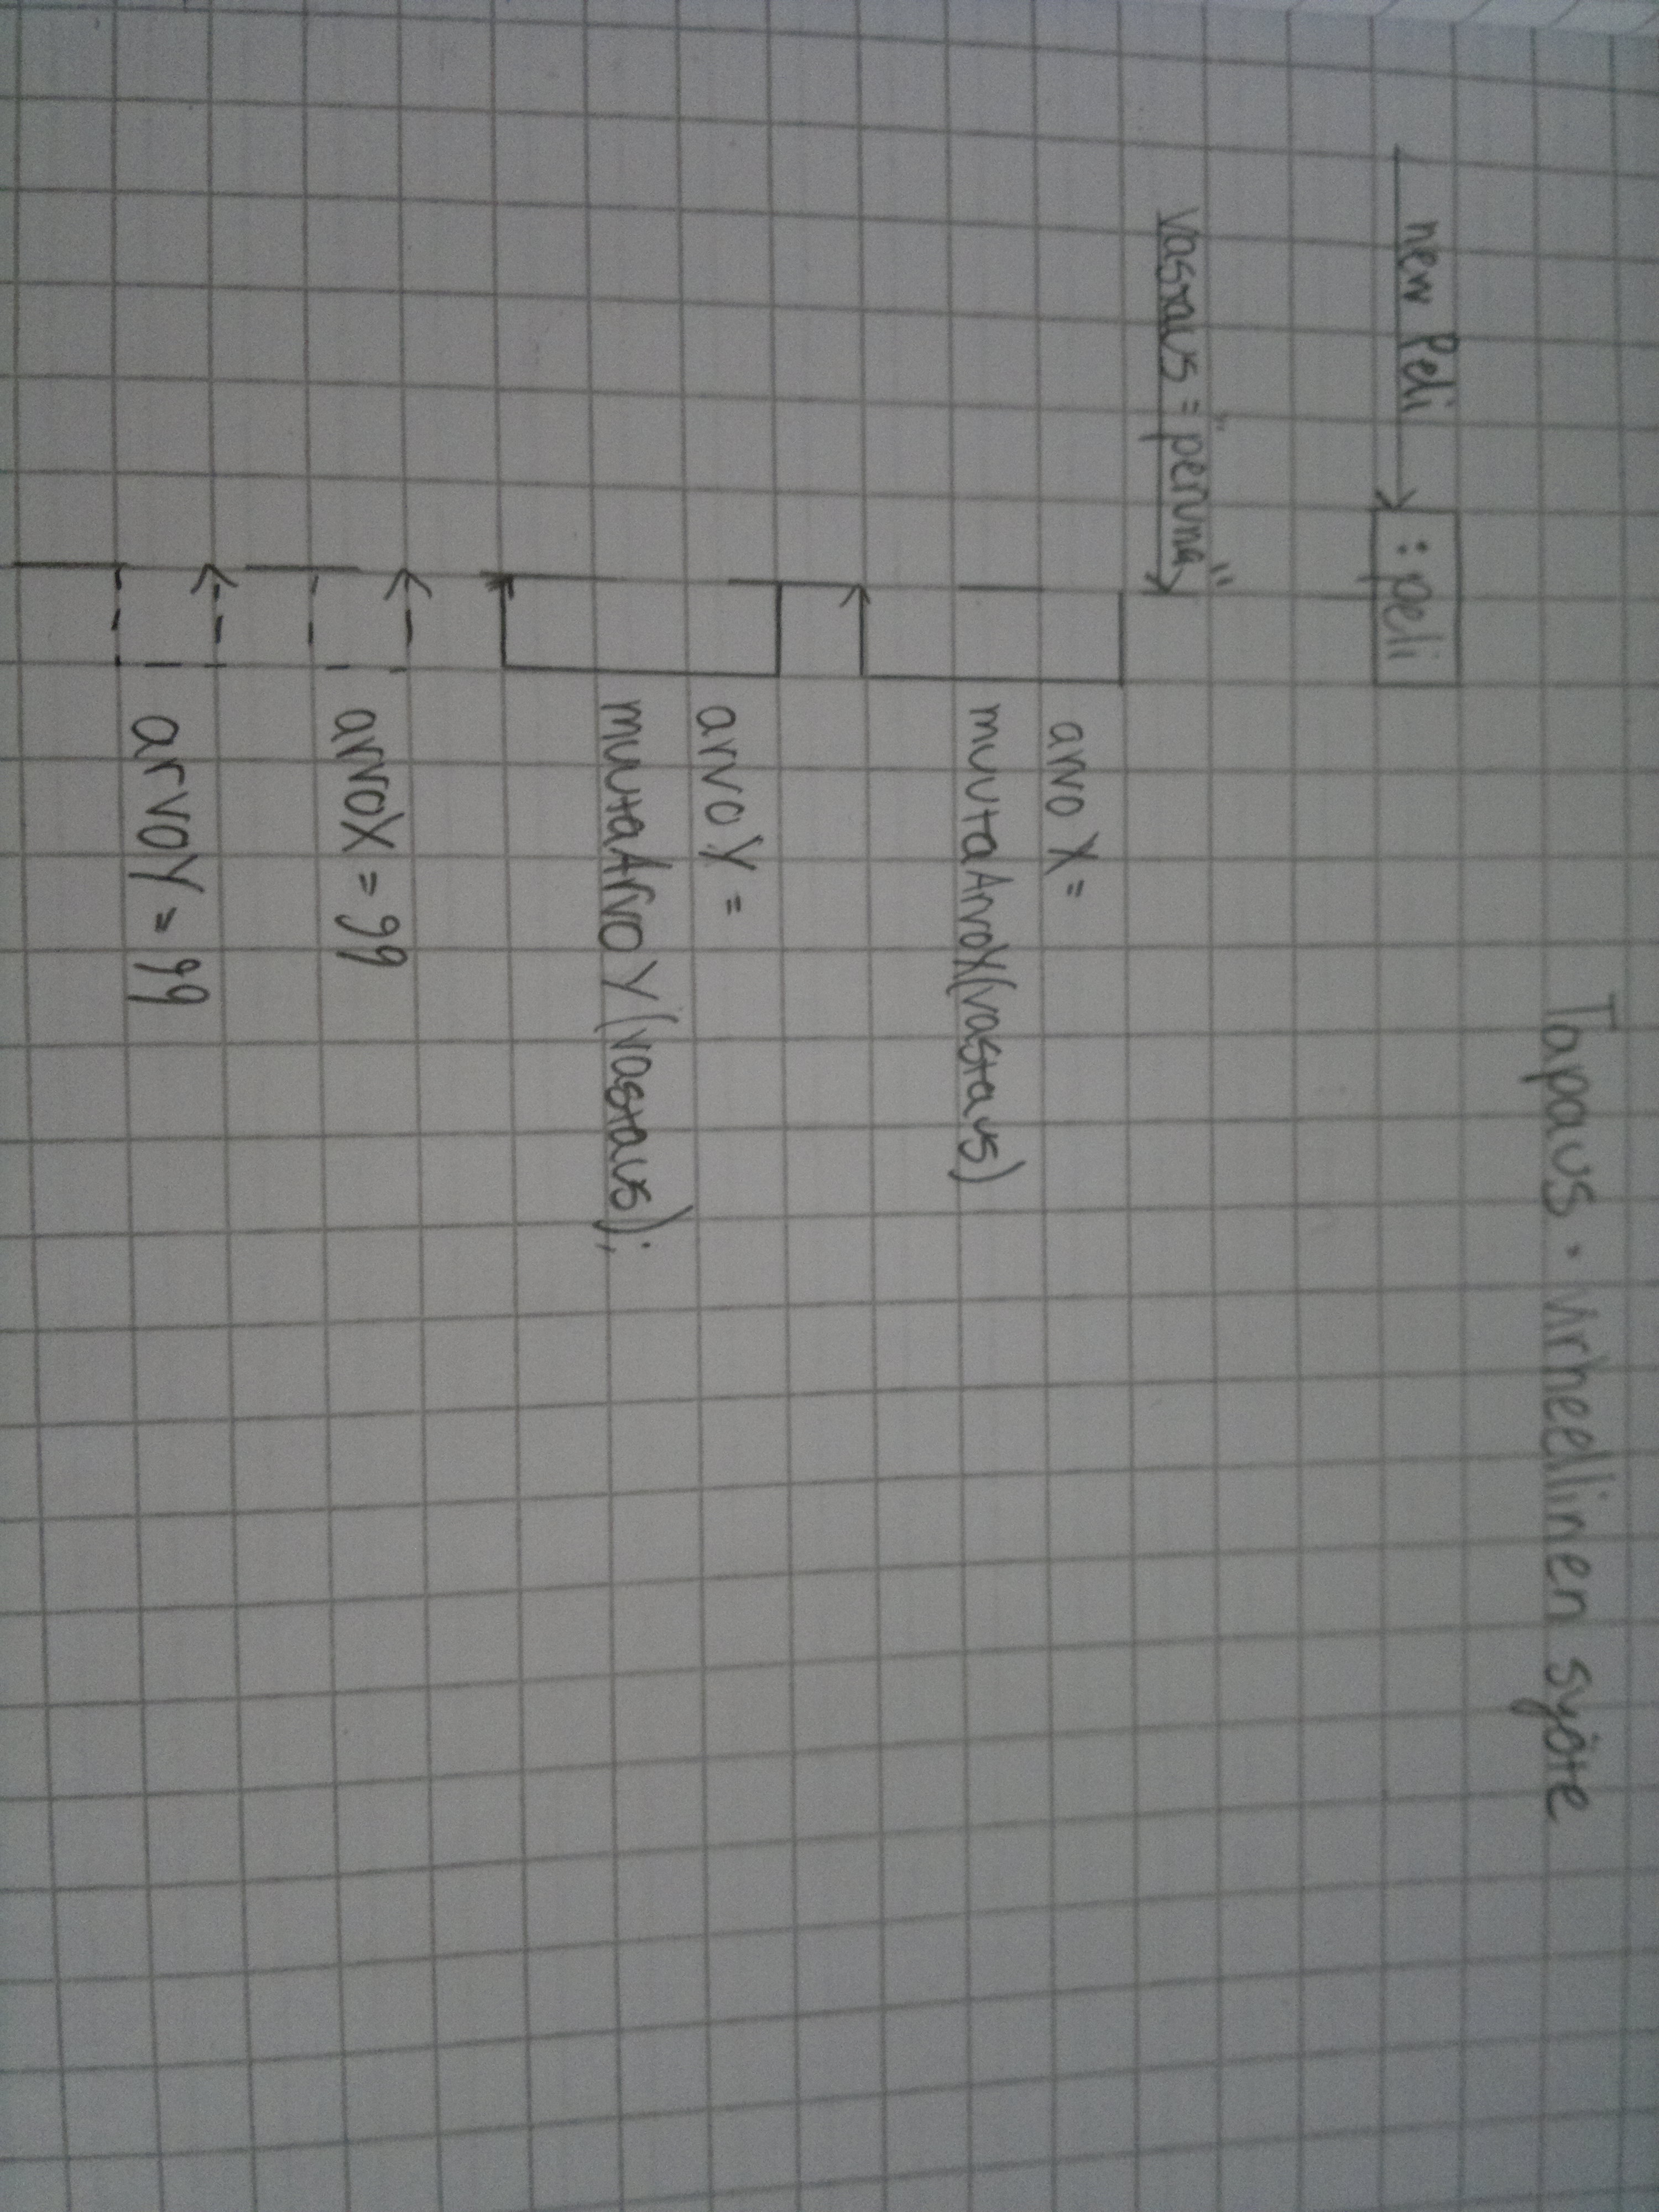 Tapaus: virheellinen syöte
new Peli
:peli
vastaus = "peruna"
arvo X =
muutaArvoX(vastaus)
arvoY =
muutaArvoY(vastaus);
arvoX = 99
arvoY = 99